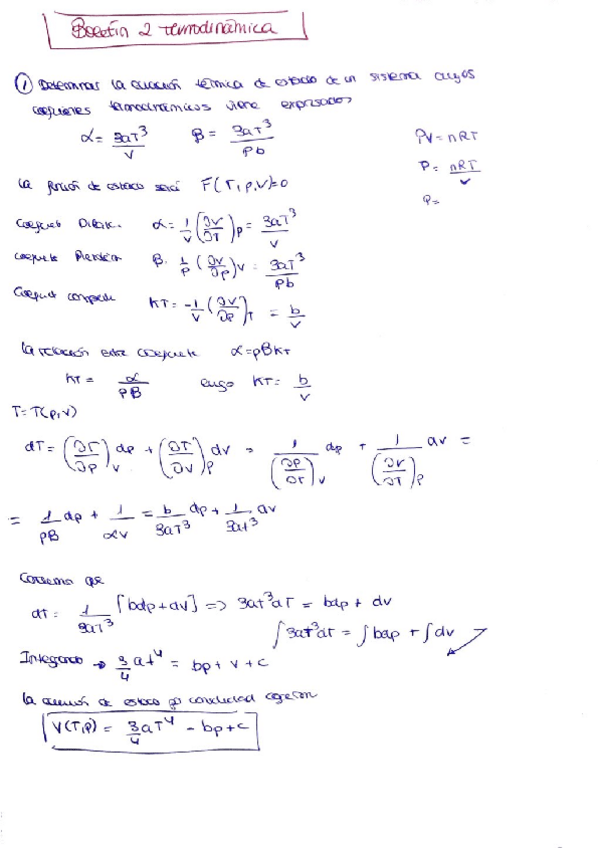 Boletín 2 Termodinámica
① Determinar la ecuación térmica de estado de un sistema cuyos
coeficientes termodinámicos viene expresados
α = 3aT³/V    β = 3aT³/Pb    PV = nRT
P = nRT/V
P=
la función de estado será F(T,p,V)=0
Coeficiente Dilatac. α = 1/V (∂V/∂T)p = 3aT³/V
β = 1/P (∂V/∂p)V = 3aT³/Pb
KT = -1/V (∂V/∂p)T = b/V
la relación entre coeficiente α=pBKT
KT = α/PB    luego KT = b/V
T=T(p,V)
dT = (∂T/∂p)V dp + (∂T/∂V)p dV = 1/(∂p/∂T)V dp + 1/(∂V/∂T)p dV =
= 1/PB dp + 1/αV = b/3aT³ dp + 1/3aT³ dV
que
dT = 1/3aT³ [bdp + dV] => 3aT³dT = bdp + dV
∫3aT³dT = ∫bdp + ∫dV
Integrando → 3/4 aT⁴ = bp + V + C
la de estado
V(T,p) = 3/4 aT⁴ - bp + C